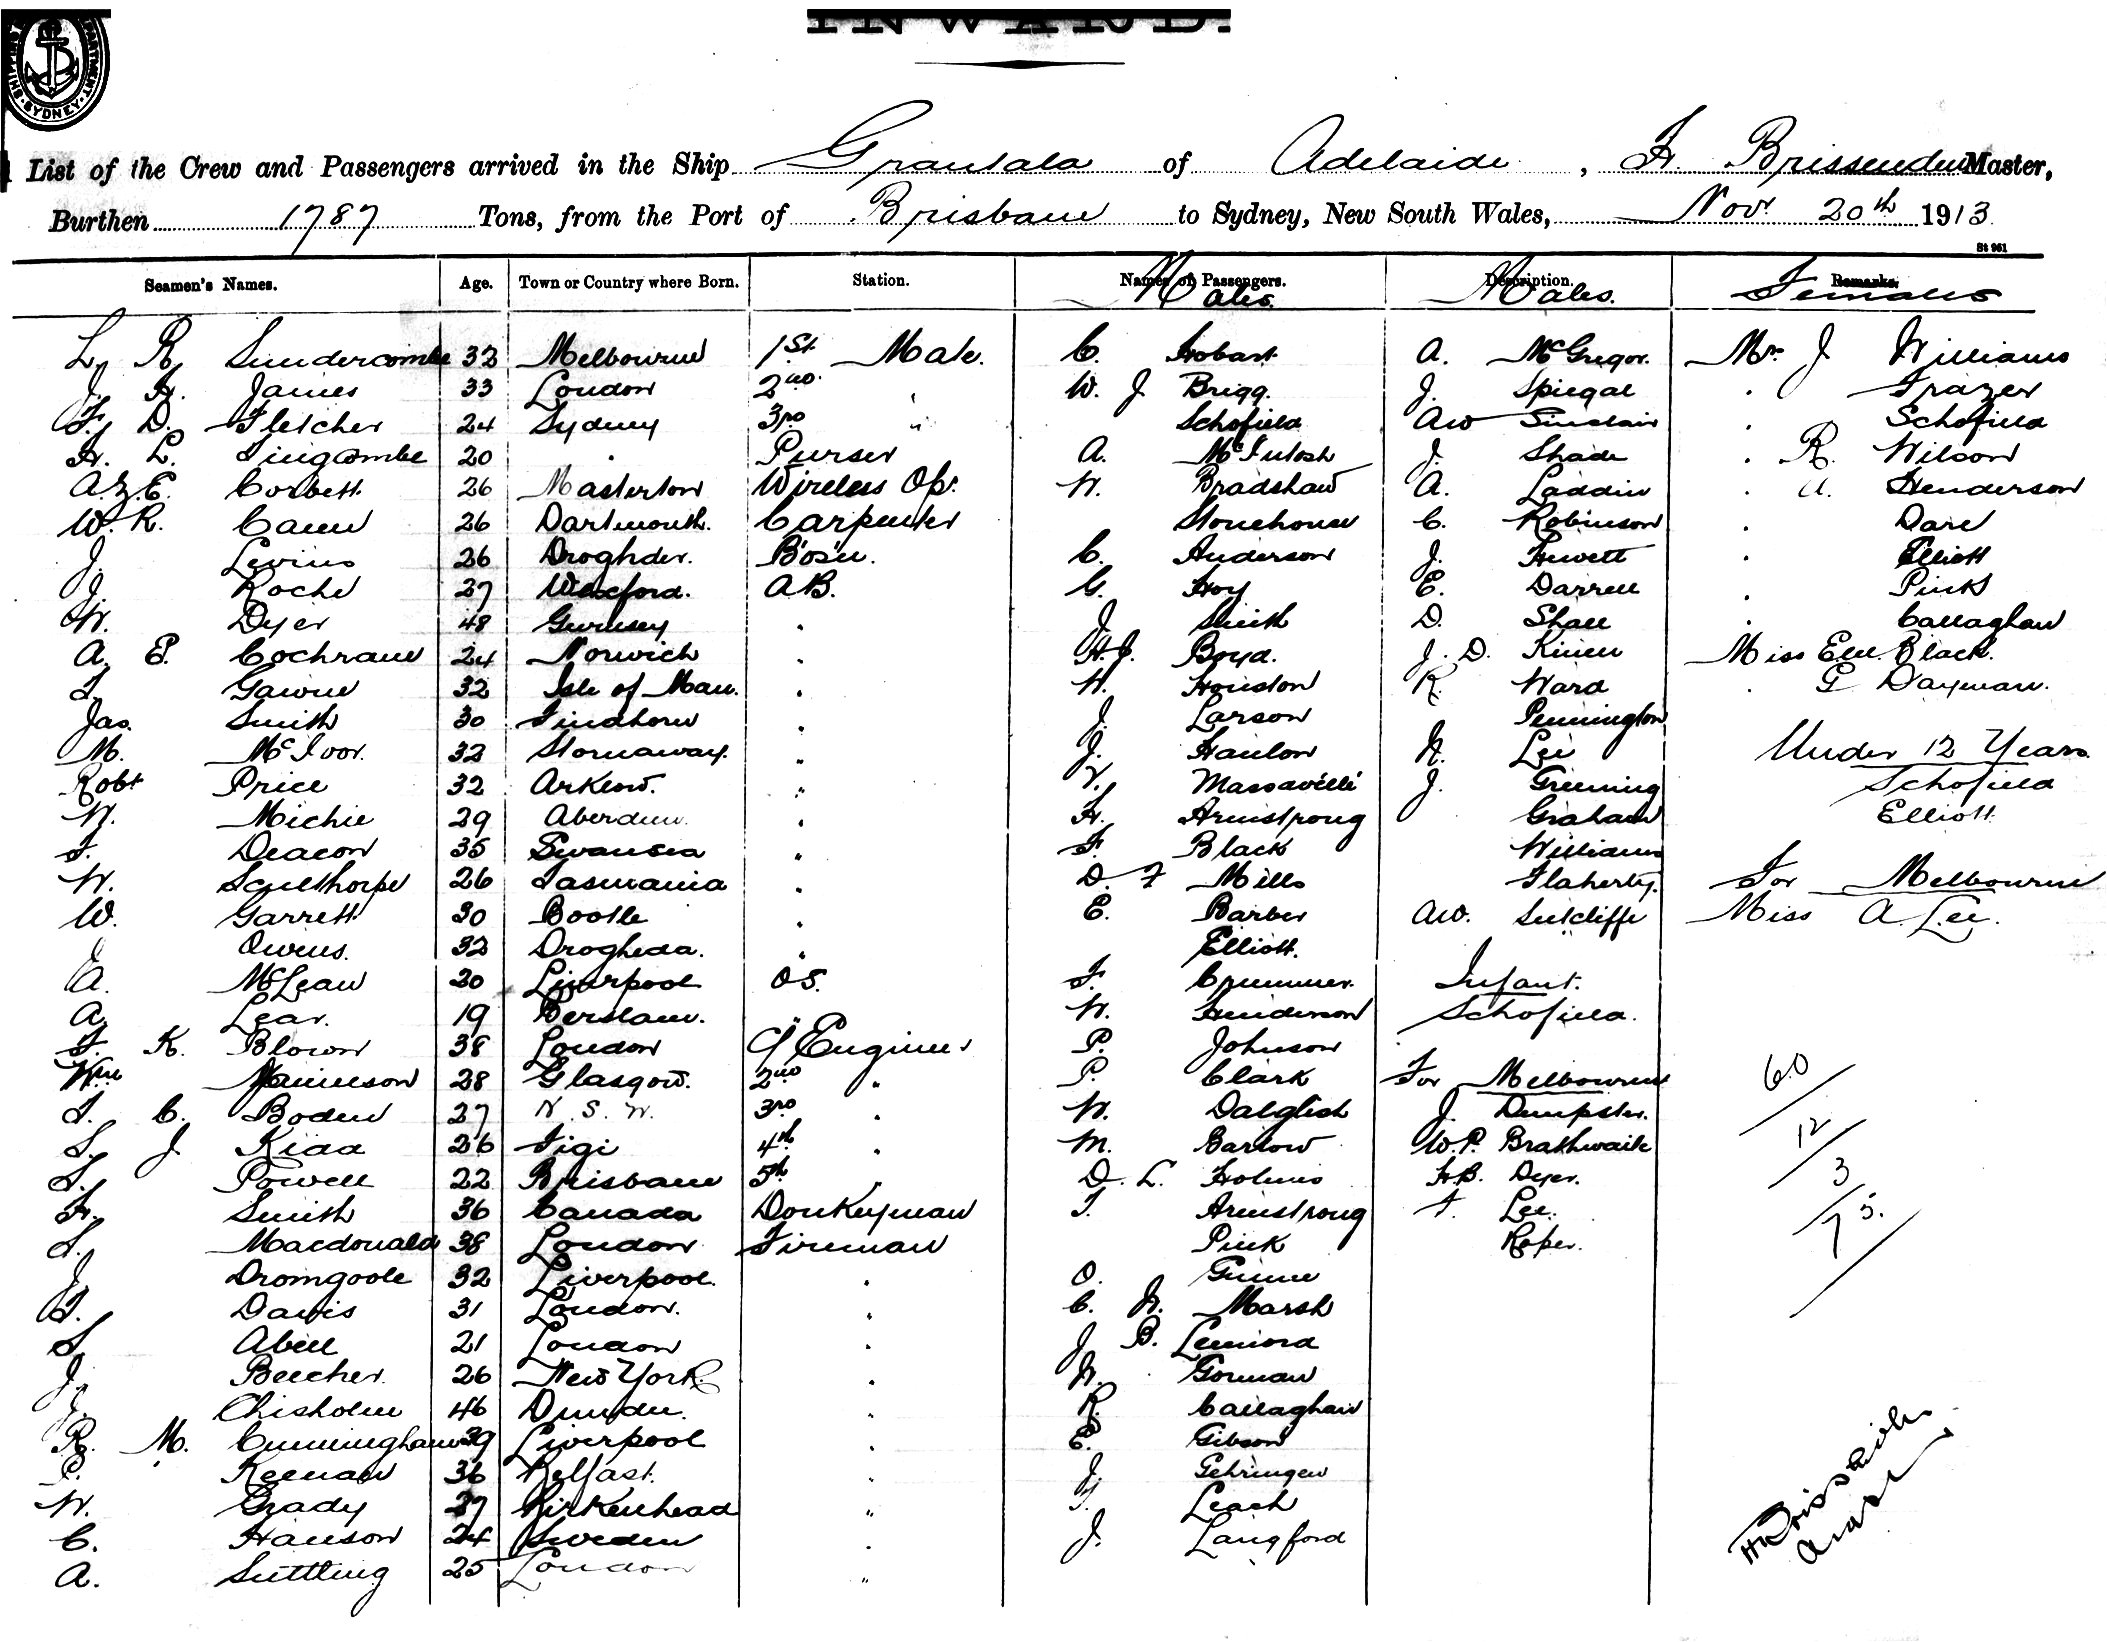 INWARD.
SHIPPING DEPARTMENT SYDNEY
List of the Crew and Passengers arrived in the Ship Grantala of Adelaide, H. Brissenden Master,
Burthen 1787 Tons, from the Port of Brisbane to Sydney, New South Wales, Nov. 20th 1913
St 961
Seamen's Names. Age. Town or Country where Born. Station. Names of Passengers. Description. Remarks.
Males. Males. Females
L. R. Sundercombe 32 Melbourne 1st Mate. C. Hobart A. McGregor. Mrs J Williams
J. H. James 33 London 2nd " W. J Brigg. J. Spiegal " Frazer
F. D. Fletcher 24 Sydney 3rd " Schofield AW Sinclair " Schofield
H. L. Tingcombe 20 " Purser A. McIntosh J. Shade " R. Wilson
A.G.E. Corbett 26 Masterton Wireless Op. W. Bradshaw A. Laddin " A. Henderson
W. R. Cann 26 Dartmouth. Carpenter Stonehouse C. Robinson " Dare
J. Levins 26 Droghder. Bos'n. C. Anderson J. Hewett " Elliott
J. Roche 27 Wexford. AB. G. Hoy E. Darrell " Pink
W. Dyer 48 Guernsey " J. Smith D. Shall " Callaghan
A. E. Cochrane 24 Norwich " H.J. Boyd. J. D. Kinen Miss Black.
T. Gawne 32 Isle of Man. " W. Houston R. Ward " G Dayman.
Jas. Smith 30 Findhorn " J. Larson Pennington
M. McIvor. 32 Stornaway. " J. Hanlon W. Lee Under 12 Years
Robt Price 32 Arklow. " V. Massavielli J. Greening Schofield
W. Michie 29 Aberdeen. " H. Armstrong Graham Elliott
T. Deacon 35 Swansea " F. Black Williams
W. Sculthorpe 26 Tasmania " D. F Mills Flaherty. For Melbourne
W. Garrett 30 Bootle " E. Barber AW. Sutcliffe Miss A. Lee.
J Owens. 32 Drogheda. " Elliott.
A. McLean 20 Liverpool OS. F. Crummer. Infant.
A. Lear. 19 " W. Henderson Schofield.
F. K. Blown 38 London C/ Engineer P. Johnson
Wm Jamieson 28 Glasgow. 2nd " P. Clark For Melbourne
T. C. Boden 27 N. S. W. 3rd " W. Dalglish J. Dempster.
S. J Kidd 26 Figi 4th " M. Barlow W.P. Brathwaite
S. Powell 22 Brisbane 5th " D. L. Holmes H.B. Dyer.
H. Smith 36 Canada Donkeyman T. Armstrong F. Lee.
S. Macdonald 38 London Fireman Pink Roper.
J. Dromgoole 32 Liverpool. " O. Gunne
T. Davis 31 London. " C. W. Marsh
S. Abell 21 London " J B. Lennord
J. Beecher. 26 New York " W. Gorman
J. Chisholm 46 Dundee. " R. Callaghan
R. M. Cunningham 39 Liverpool " E. Gibson
P. Keenan 36 Belfast. " J. Gehringen
W. Grady 37 Birkenhead " T. Leach
C. Hanson 24 Sweden " J. Langford
A. Suttling 25 London "
60
12
3
75.
H Brissenden